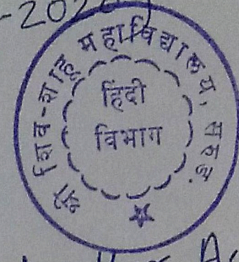 -2020
श्री शिव-शाहू महाविद्यालय, सरुड
हिंदी
विभाग